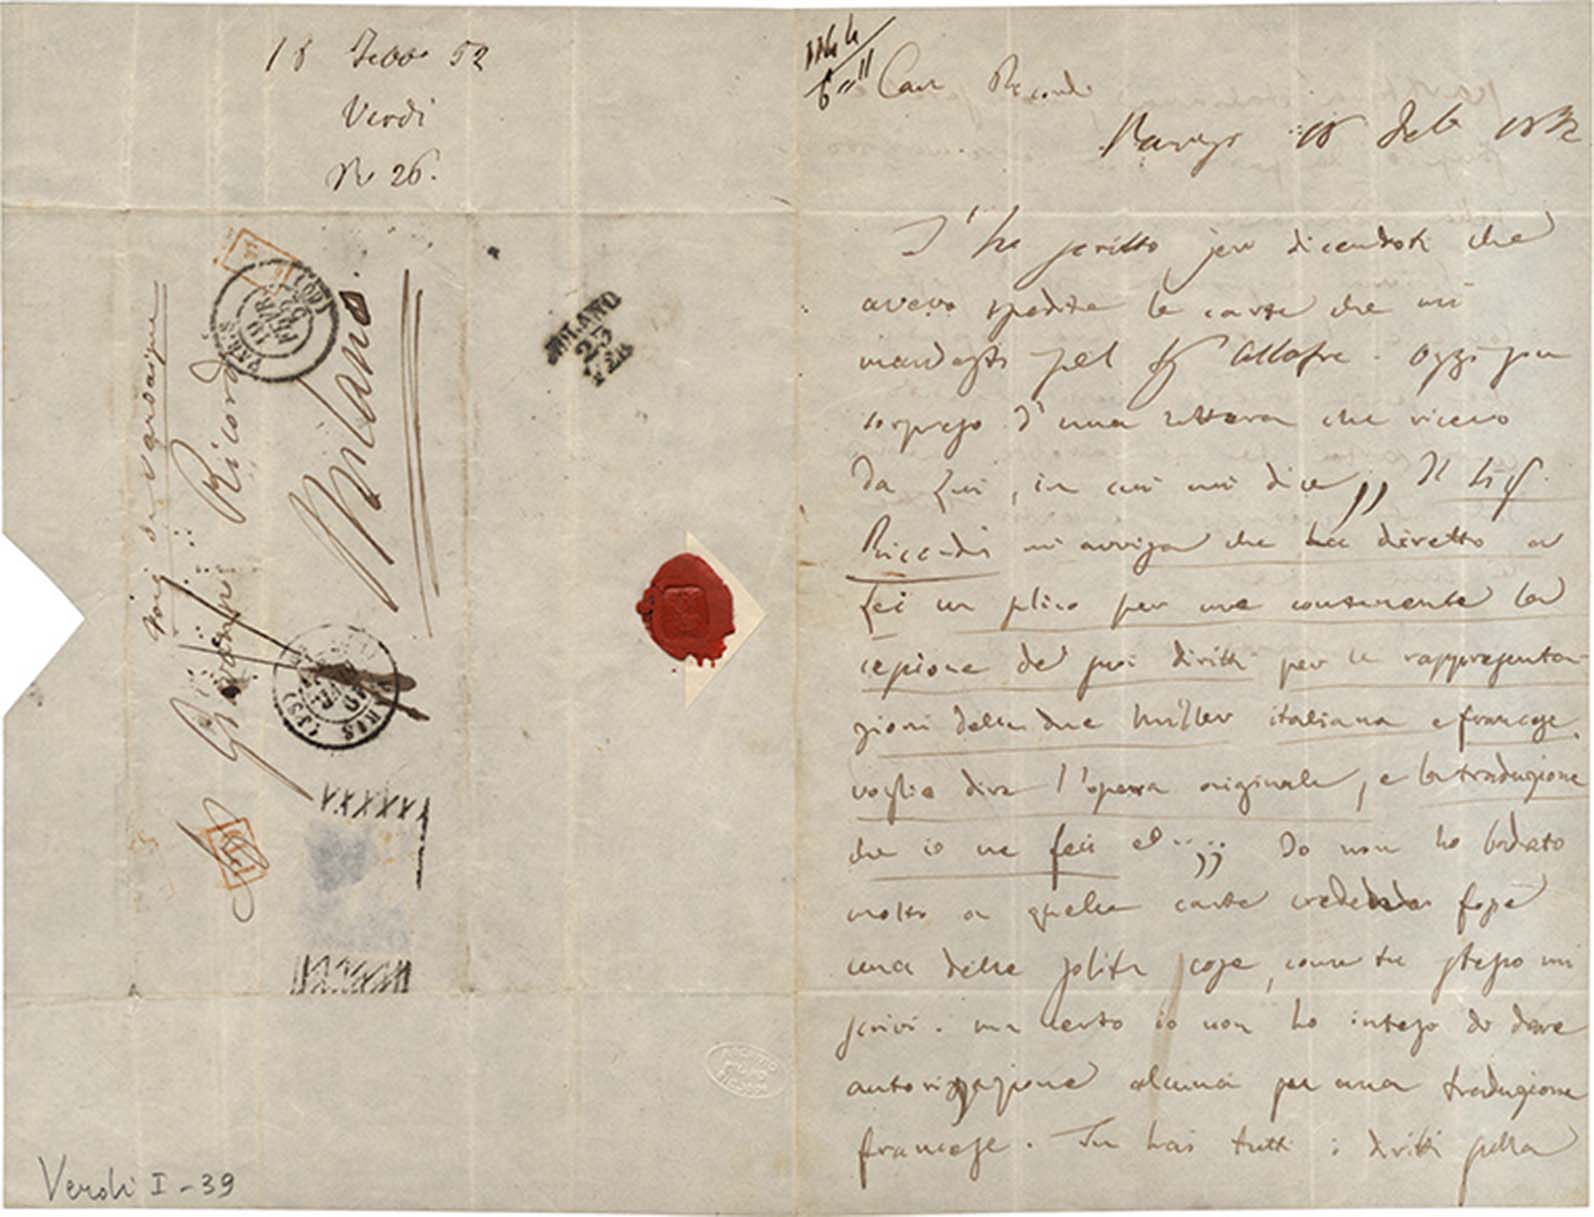 18 Febb. 52
Verdi
No 26.
Voie de Sardaigne
Sr Giovanni Ricordi
Milano
MILANO
23
FEB
PARIS
19
FEVR
(60)
PARIS
19
FEVR
(60)
Verdi I - 39
Car Ricordi
Parigi 18 Feb 1852
T'ho scritto jeri dicendoti che
avevo spedite le carte che mi
mandasti pel Sig. Escudier
sorpreso d'una lettera che ricevo
da lui, in cui mi dice „ Il Sig.
Riccordi mi avvisa che ha diretto a
Lei un plico per me contenente la
cessione de' suoi diritti per le rappresenta-
zioni delle due Miller italiana e francese,
voglio dire l'opera originale, e la traduzione
che io ne feci ed .... „ Io non ho badato
molto a quelle carte credendo fosse
una delle solite cose, come tu stesso mi
scrivi. ma certo io non ho inteso di dare
autorizzazione alcuna per una traduzione
francese. Tu hai tutti i diritti sulla